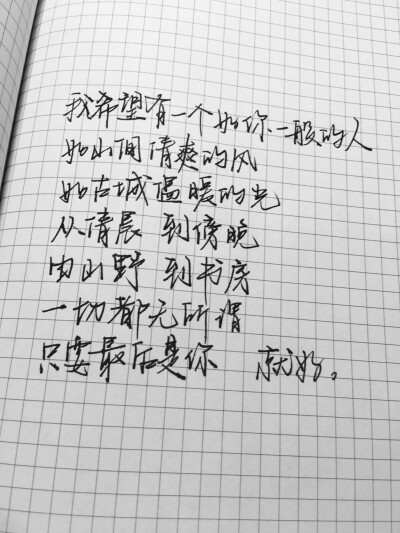 我希望有一个如你一般的人
如山间清爽的风
如古城温暖的光
从清晨 到傍晚
由山野 到书房
一切都无所谓
只要最后是你 就好。